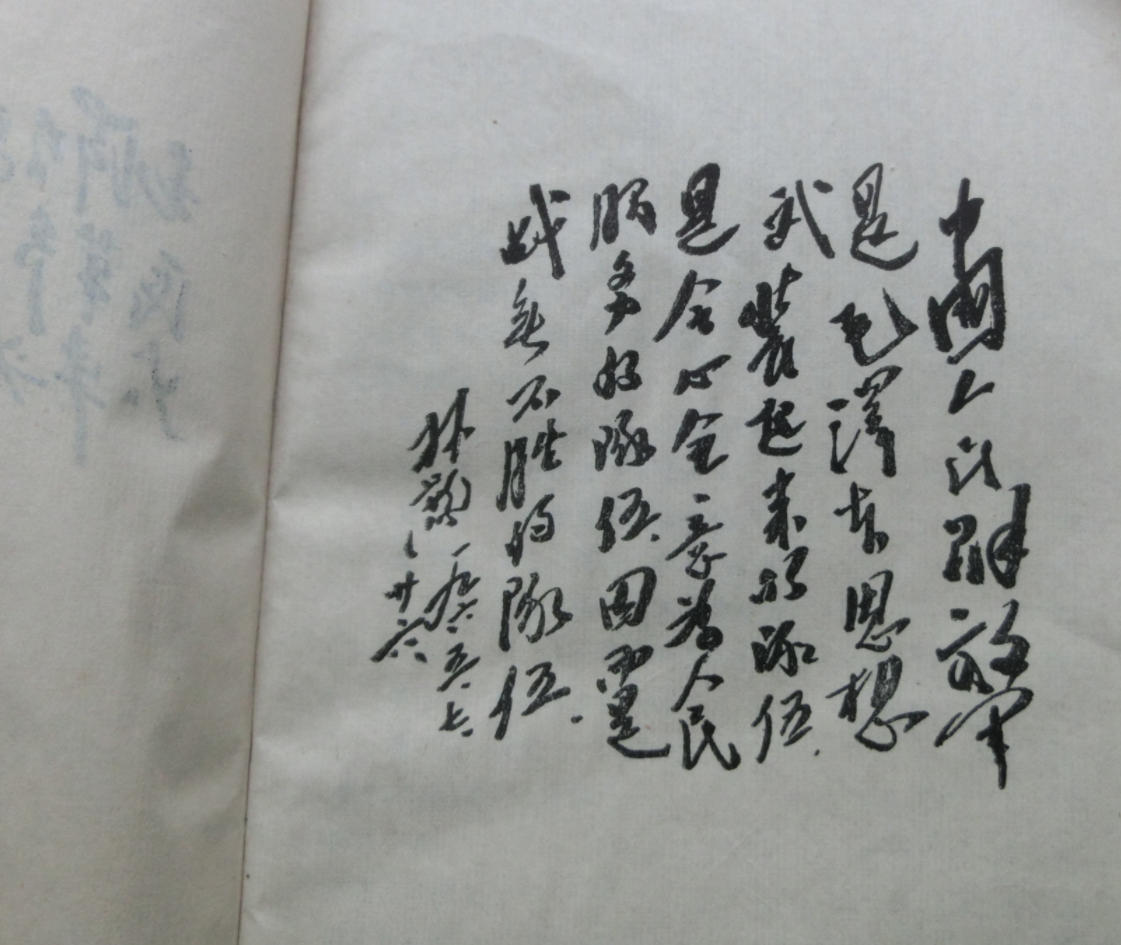 中国人民解放军
是毛澤东思想
武装起来的隊伍.
是全心全意为人民
服务的隊伍.因而是
战无不胜的隊伍.
林彪 一九六五.七.
廿六